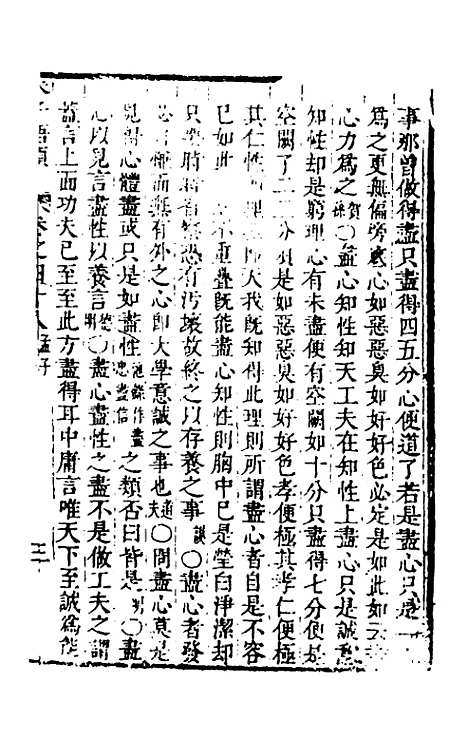 事那曾做得盡只盡得四五分心便道了若是盡心只是一
爲之更無偏旁底心如惡惡臭如好好色必定是如此如云
心力爲之賀孫〇盡心知性知天工夫在知性上盡心只是誠
知性却是窮理心有未盡便有空闕如十分只盡得七分便是
空闕了二三分須是如惡惡臭如好好色孝便極其孝仁便極
其仁性 理 天我既知得此理則所謂盡心者自是不容
已如此 不重疊既能盡心知性則胸中已是瑩白淨潔却
只要時時省察恐有污壞故終之以存養之事謨〇盡心者發
必 慊而無有外之心即大學意誠之事也道夫〇問盡心莫是
見得心體盡或只是如盡性池錄作盡忠盡信之類否曰皆是 〇盡
心以見言盡性以養言德明〇盡心盡性之盡不是做工夫之謂
蓋言上面功夫已至至此方盡得耳中庸言唯天下至誠爲能
朱子語類 卷之四十八 孟子 三